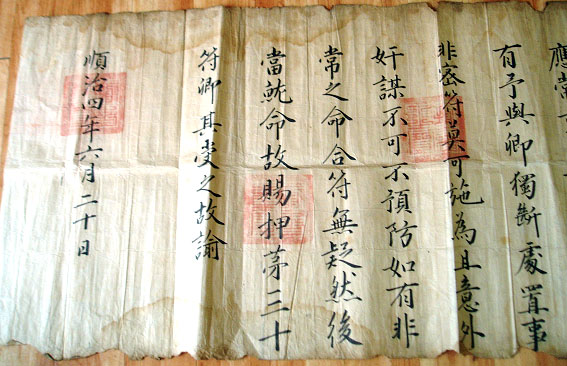 應常
有予與卿獨斷處置事
非密符莫可施為且意外
奸謀不可不預防如有非
常之命合符無疑然後
當就命故賜押苐三十
符卿其受之故諭
順治四年六月二十日